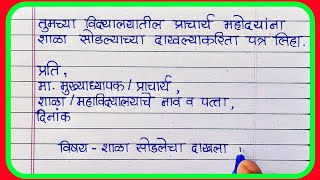 तुमच्या विद्यालयातील प्राचार्य महोदयांना
शाळा सोडल्याच्या दाखल्याकरिता पत्र लिहा.
प्रति,
मा. मुख्याध्यापक / प्राचार्य,
शाळा / महाविद्यालयाचे नाव व पत्ता,
दिनांक
विषय - शाळा सोडलेचा दाखला